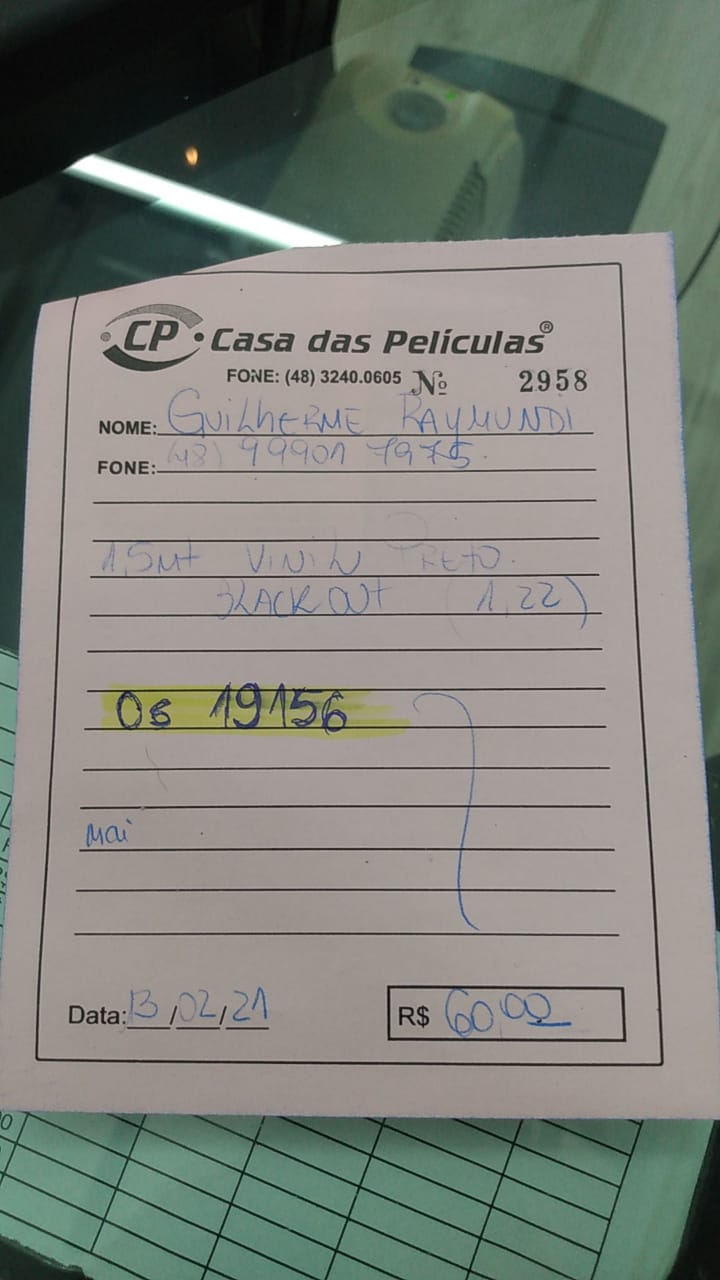 CP Casa das Películas®
FONE: (48) 3240.0605 Nº 2958
NOME: GUILHERME RAYMUNDI
FONE: (48) 99901 7975
1,5mt VINIL PRETO.
BLACKOUT (1,22)
Os 19156
mai
Data: 13/02/21 R$ 60,00